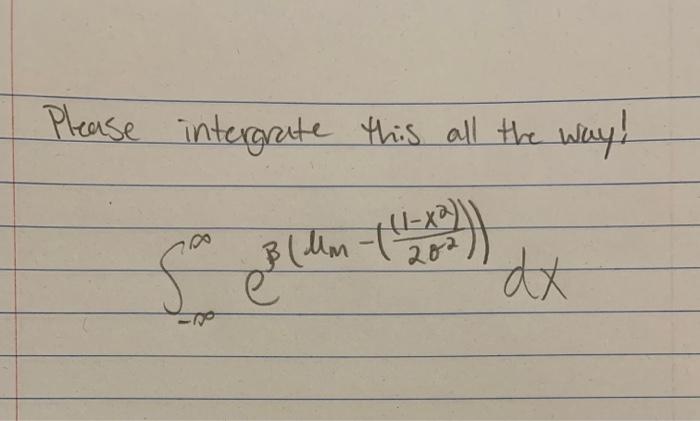 Please intergrate this all the way!
∫_{-∞}^{∞} e^{β(μ_m - ((1-x²)/(2σ²)))} dx